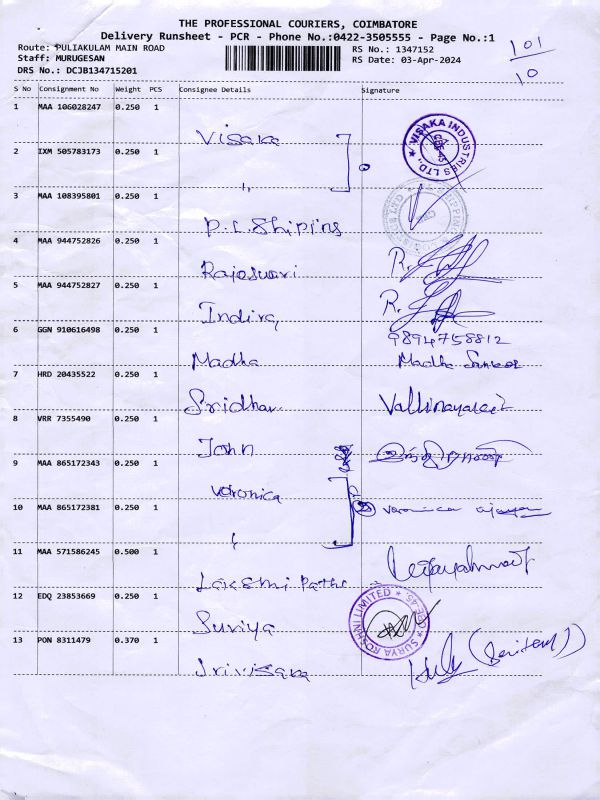 THE PROFESSIONAL COURIERS, COIMBATORE
Delivery Runsheet - PCR - Phone No.:0422-3505555 - Page No.:1
Route: PULIAKULAM MAIN ROAD
Staff: MURUGESAN
DRS No.: DCJB134715201
RS No.: 1347152
RS Date: 03-Apr-2024
101
10
S No Consignment No Weight PCS Consignee Details Signature
1 MAA 106028247 0.250 1 Visaka
VISAKA INDUSTRIES LTD., CBE-45
2 IXM 505783173 0.250 1 "
3 MAA 108395801 0.250 1 P.L. Shipins
4 MAA 944752826 0.250 1 Rajeswari R.
5 MAA 944752827 0.250 1 Indira R.
9894758812
6 GGN 910616498 0.250 1 Madha Madha Sankar
7 HRD 20435522 0.250 1 Sridhar
8 VRR 7355490 0.250 1 John
9 MAA 865172343 0.250 1 Veronica
10 MAA 865172381 0.250 1 " 2 Veronica
11 MAA 571586245 0.500 1 Lakshmi Pathi
12 EDQ 23853669 0.250 1 Suriya
SURYA ROSHNI LIMITED CBE-45
13 PON 8311479 0.370 1 Srivisaka